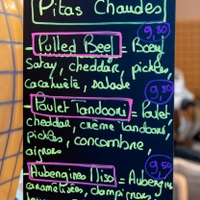 Pitas Chaudes
9,80
- Pulled Beef = Boeuf
Satay, cheddar, pickles,
cacahuète, salade
9,50
- Poulet Tandoori = Poulet,
cheddar, crème tandoori,
pickles, concombre,
oignons
9,50
- Aubergines Miso = Aubergines
caramélisées, champignons